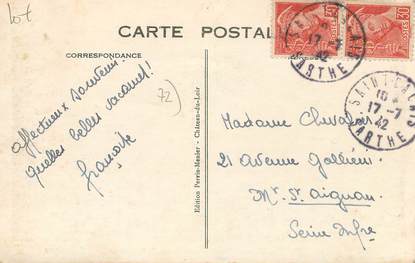 lot
CARTE POSTALE
CORRESPONDANCE
Affectueux souvenir.
Quelles belles vacances!
françoise
72
Edition Perrin-Menier - Château-du-Loir
30
POSTES
17-7
42
SARTHE
17-7
42
SARTHE
Madame Chevalier
21 Avenue Gallieni
Mt St Aignan
Seine Infre